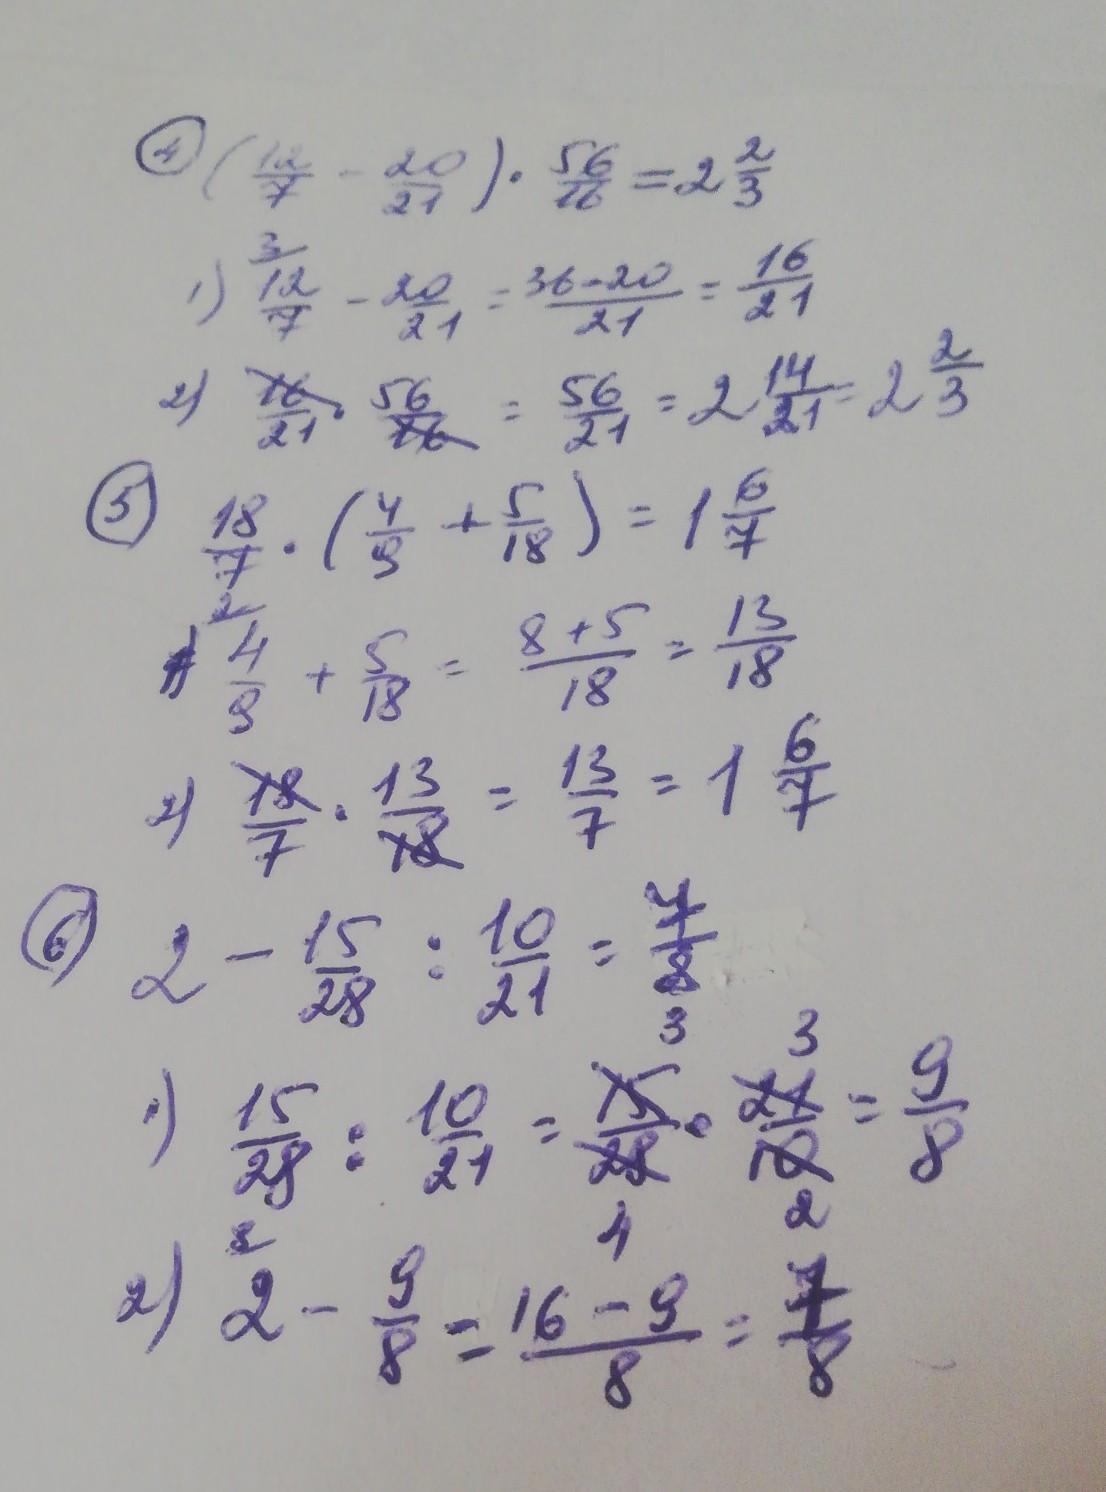 ④ (12/7 - 20/21) · 56/16 = 2 2/3
3
1) 12/7 - 20/21 = 36-20/21 = 16/21
2) 16/21 · 56/16 = 56/21 = 2 14/21 = 2 2/3
⑤ 18/7 · (4/9 + 5/18) = 1 6/7
2
1) 4/9 + 5/18 = 8+5/18 = 13/18
2) 18/7 · 13/18 = 13/7 = 1 6/7
⑥ 2 - 15/28 : 10/21 = 7/8
3 3
1) 15/28 : 10/21 = 15/28 · 21/10 = 9/8
4 2
8
2) 2 - 9/8 = 16-9/8 = 7/8